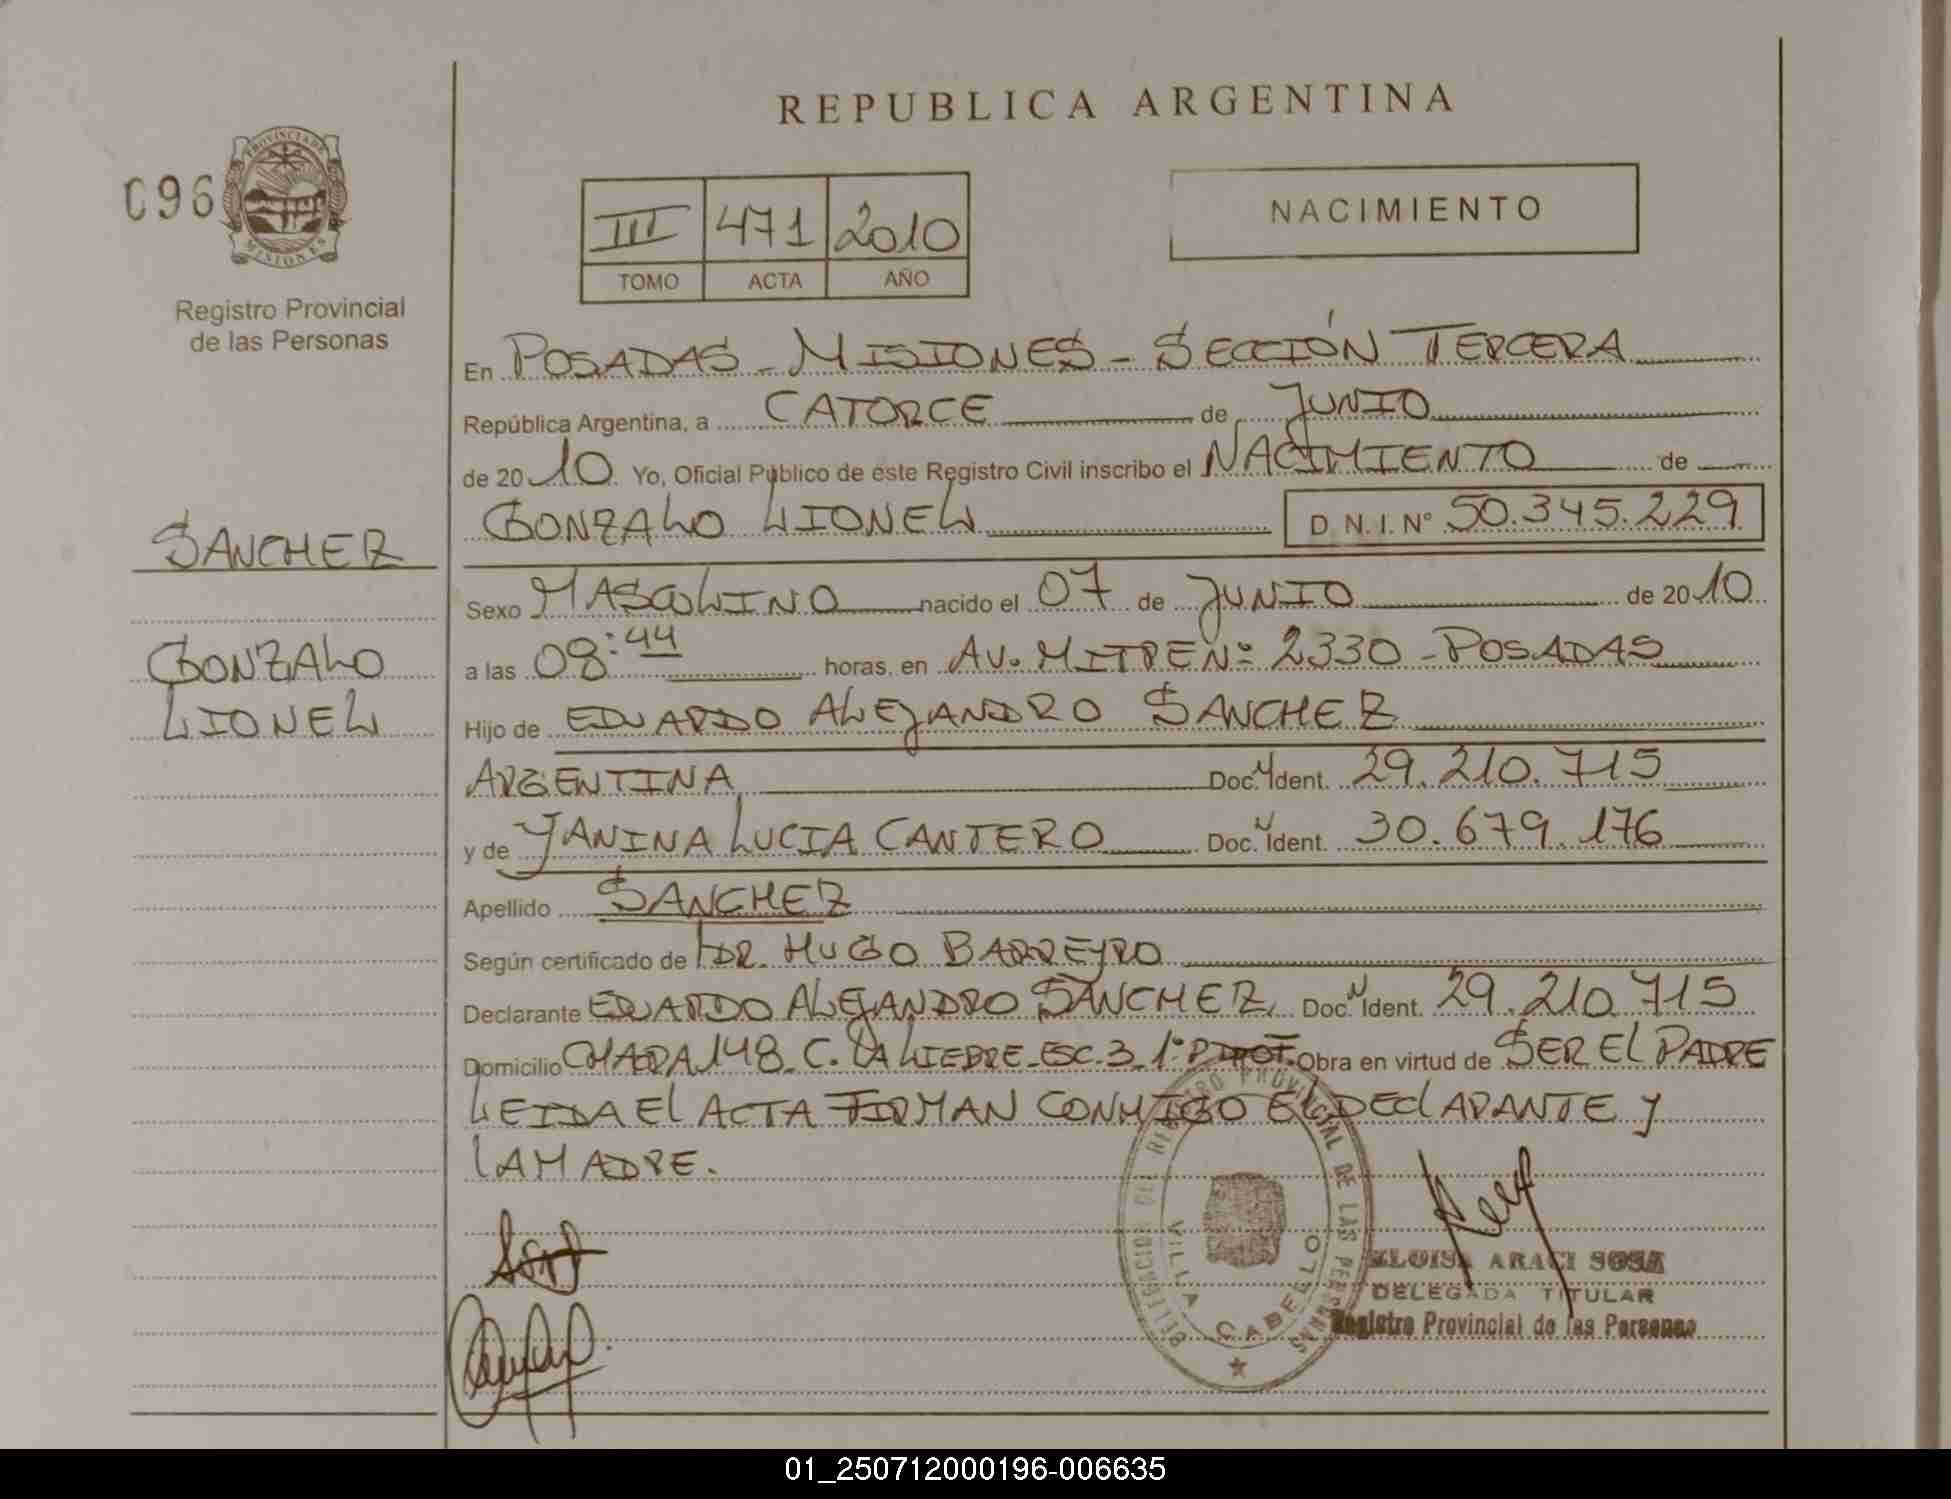 REPUBLICA ARGENTINA
096
PROVINCIA DE MISIONES
III 471 2010
TOMO ACTA AÑO
NACIMIENTO
Registro Provincial
de las Personas
En POSADAS - MISIONES - SECCIÓN TERCERA
República Argentina, a CATORCE de JUNIO
de 2010 Yo, Oficial Público de este Registro Civil inscribo el NACIMIENTO de
GONZALO LIONEL D.N.I. Nº 50.345.229
SANCHEZ
GONZALO
LIONEL
Sexo MASCULINO nacido el 07 de JUNIO de 2010
a las 08:44 horas, en AV. MITRE Nº 2330 - POSADAS
Hijo de EDUARDO ALEJANDRO SANCHEZ
ARGENTINA Doc. N Ident. 29.210.715
y de YANINA LUCIA CANTERO Doc. N Ident. 30.679.176
Apellido SANCHEZ
Según certificado de DR. HUGO BARREYRO
Declarante EDUARDO ALEJANDRO SANCHEZ Doc. N Ident. 29.210.715
Domicilio CHARA 148 - C. LA LIEBRE - ESC. 3 - 1º P Obra en virtud de SER EL PADRE
LEIDA El ACTA FIRMAN CONMIGO EL DEClARANTE Y
LA MADRE.
DELEGACION DEL REGISTRO PROVINCIAL DE LAS PERSONAS
VILLA CABELLO
ELOISA ARACI SOSA
DELEGADA TITULAR
Registro Provincial de las Personas
01_250712000196-006635